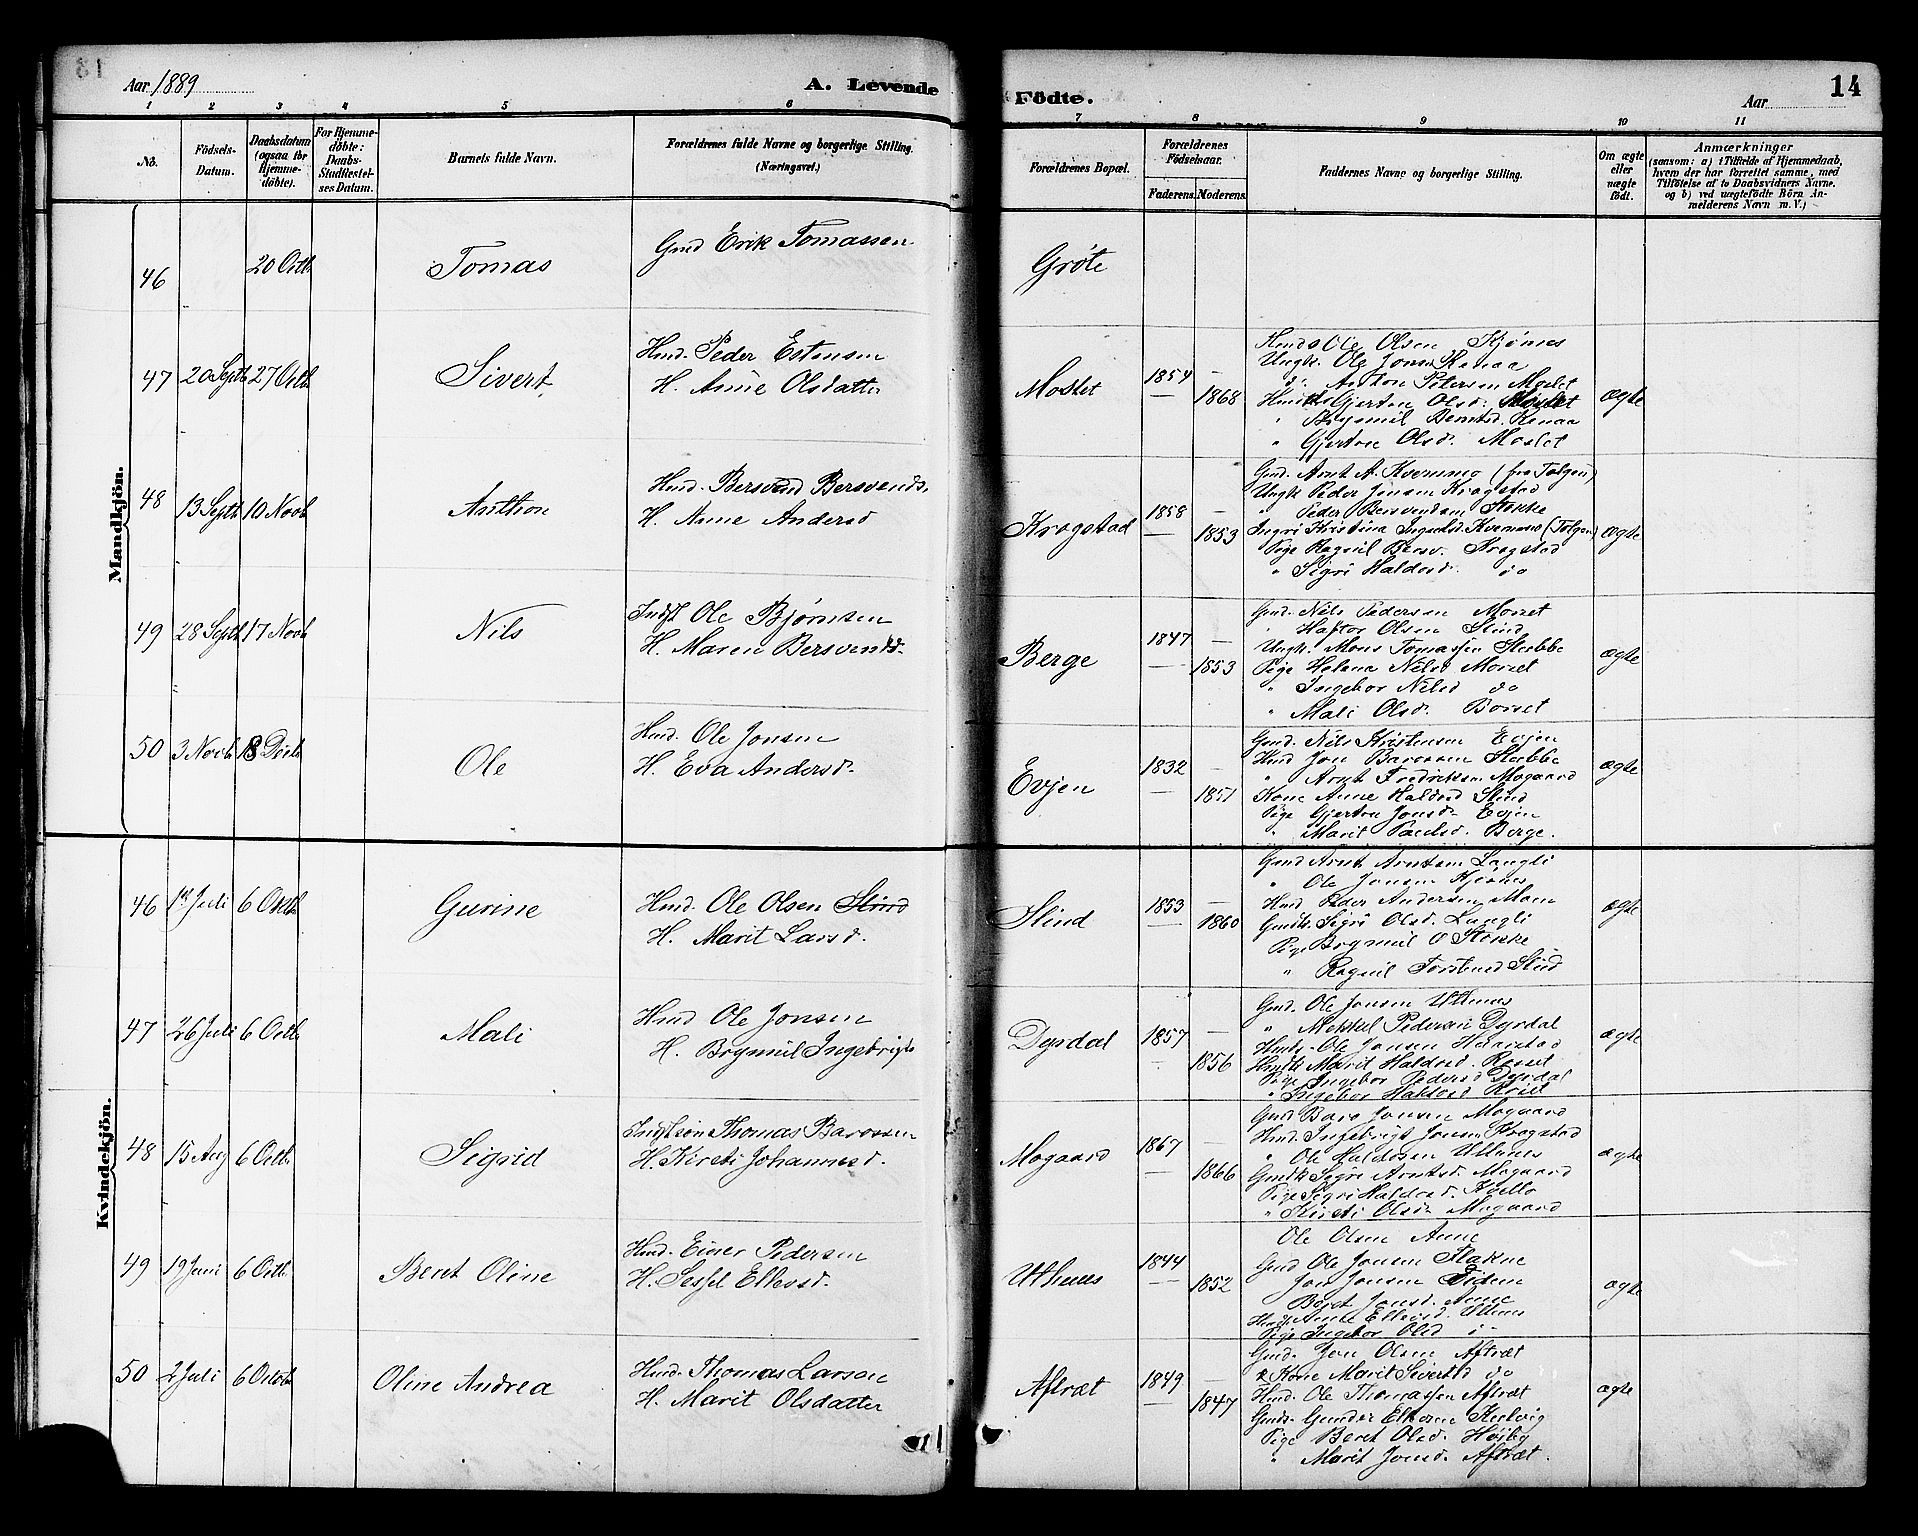 Aar 1889
A. Levende
Födte.
Aar
14
1 2 3 4 5 6 7 8 9 10 11
No.
Födsels-Datum.
Daabsdatum (ogsaa for Hjemmedöbte).
For Hjemmedöbte: Daabs-Stadfæstelses Datum.
Barnets fulde Navn.
Forældrenes fulde Navne og borgerlige Stilling. (Næringsvei.)
Forældrenes Bopæl.
Forældrenes Födselsaar.
Faderens. Moderens.
Faddernes Navne og borgerlige Stilling.
Om ægte eller uægte født.
Anmærkninger
(saasom: a) i Tilfælde af Hjemmedaab, hvem der har forrettet samme, med Tilföielse af to Daabsvidners Navne. og b) ved uægtefödte Börn Anmelderens Navn m. V.)
Mandkjön.
46
20 Octb
Tomas
Gmd Erik Tomassen
Gröte
47
20 Septb 27 Octb
Sivert
Hmd. Peder Estensen
H. Anne Olsdatter
Moslet
1854
1868
Ole Olsen Kjönes
Ungk. Ole Jons Ranaa
do. Anton Petersen Moslet
Gjertru Olsd. Moslet
" Brynmil Berntsd. Ranaa
" Gjertru Olsd. Moslet
ægte
48
13 Septb 10 Novb
Anthon
Hmd. Bersvend Bersvends.
H. Anne Andersd
Krogstad
1858
1853
Gmd. Arnt A. Kvernmo (fra Tolgen)
Ungk Peder Jonsen Krogstad
" Peder Bersvendsen Stokke
Ingri Kristina Ingebrtsd. Kvernmo (Tolgen)
Pige Ragnil Bersv. Krogstad
" Sigri Haldosd. do
ægte
49
28 Septb 17 Novb
Nils
Indst Ole Bjørnsen
H. Maren Bersvendsd.
Berge
1847
1853
Gmd. Nils Pedersen Morset
" Haftor Olsen Slind
Ungk. Mons Tomassen Stubbe
Pige Helena Nilsd Morset
" Ingebor Nilsd do
" Mali Olsd. Borset
ægte
50
3 Novb 18 Decb
Ole
Hmd. Ole Jonsen
H. Eva Andersd.
Evjen
1832
1851
Gmd. Nils Kristensen Evjen
Hmd Jon Barosen Stubbe
" Arnt Fredriksen Mogaard
Kone Anne Haldosd Slind
Pige Gjertru Jonsd. Evjen
" Marit Paulsd. Berge.
ægte
Kvindekjön.
46
Juli 6 Octb
Gurine
Hmd. Ole Olsen Slind
H. Marit Larsd.
Slind
1853
1860
Gmd Arnt Arntsen Langli
" Ole Jonsen Kjönes
Hmd Peder Andersen Moen
Gmdk. Sigri Olsd. Langli
Pige Brynmil O Stokke
" Ragnil Torstensd Slind
ægte
47
26 Juli 6 Octb
Mali
Hmd Ole Jonsen
H. Brynmil Ingebrigts
Dyrdal
1857
1856
Gmd. Ole Jonsen Uthus
" Mikkel Pedersen Dyrdal
Hmd. Ole Jonsen Haarstad
Hmdk Marit Haldosd. Rosset
Pige Ingebor Pedersd Dyrdal
" Ingebor Haldosd Roset
ægte
48
15 Aug 6 Octb
Sigrid
Indstsøn Thomas Barossen
H. Kirsti Johannesd.
Mogaard
1867
1866
Gmd Baro Jonsen Mogaard
Hmd. Ingebrigt Jonsen Krogstad
" Ole Haldosen Uthus
Gmdk Sigri Arntsd. Mogaard
Pige Sigri Haldosd. Kvello
" Kirsti Olsd. Mogaard
ægte
49
19 Juni 6 Octb
Beret Oline
Hmd. Einer Pedersen
H. Sessel Ellevsd.
Uthus
1844
1852
Ole Olsen Aune
Gmd Ole Jonsen Flakne
Jon Jonsen Eidem
Beret Jonsd. Aune
Anne Ellevsd. Uthus
Pige Ingebor Olsd do
ægte
50
2 Juli 6 Octob
Oline Andrea
Hmd. Thomas Larsen
H. Marit Olsdatter
Aftræt
1849
1847
Gmd. Jon Olsen Aftræt
& Kone Marit Sivertsd do
Hmd. Ole Thomassen Aftræt
Gmds. Gunder Ellevsen Kulvig
Pige Beret Olsd. Høiby
" Marit Jonsd. Aftræt.
ægte